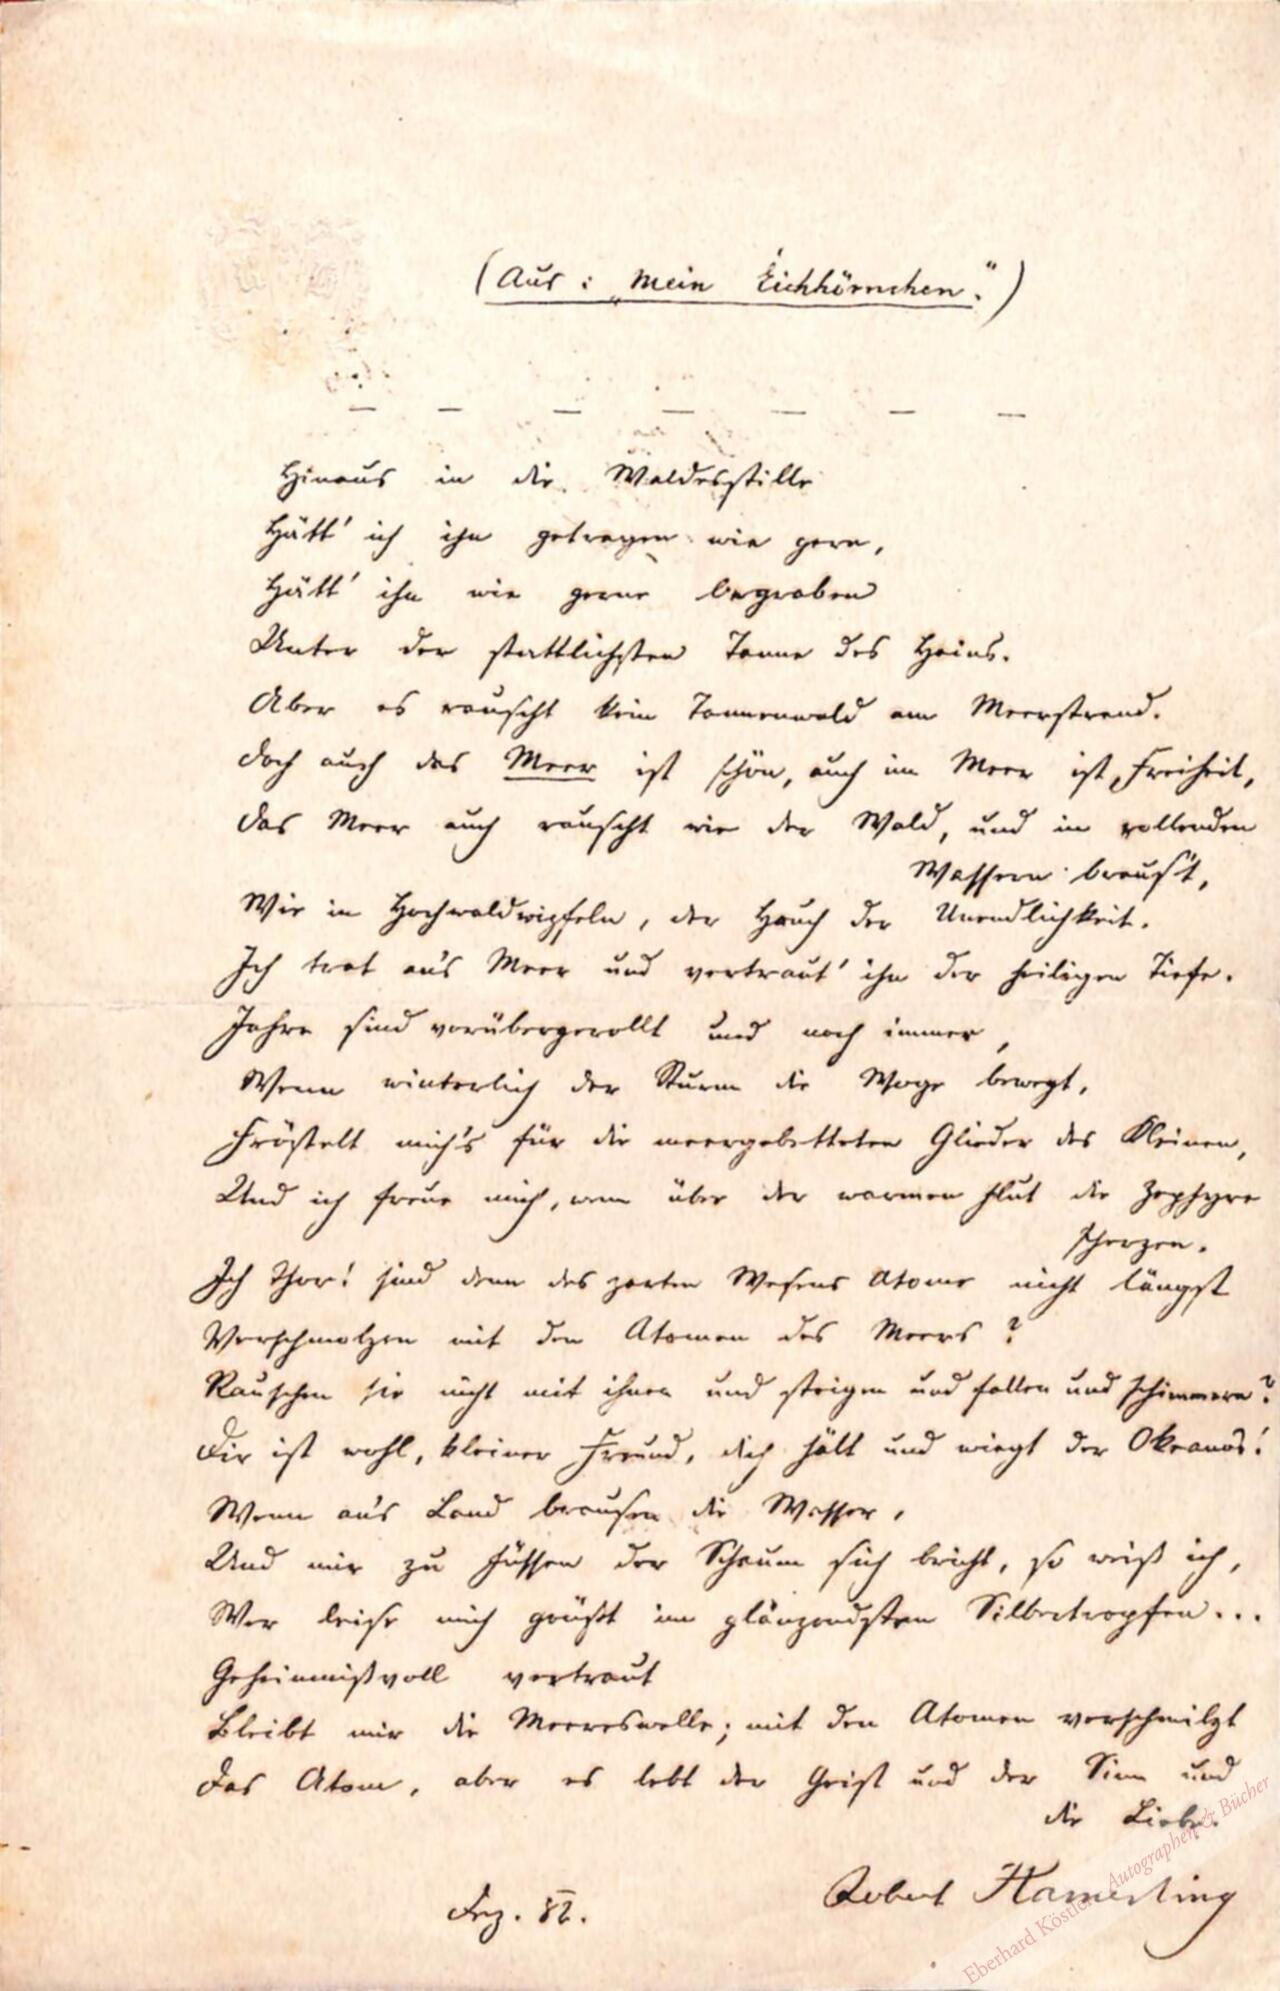 (Aus: „Mein Eichhörnchen.")
— — — — — — —
Hinaus in die Waldesstille
Hätt' ich ihn getragen wie gern,
Hätt' ihn wie gerne begraben
Unter der stattlichsten Tanne des Hains.
Aber es rauscht kein Tannenwald am Meerstrand.
Doch auch das Meer ist schön, auch im Meer ist Freiheit,
Das Meer auch rauscht wie der Wald, und in rollenden
Wassern braus't,
Wie in Hochwaldwipfeln, der Hauch der Unendlichkeit.
Ich trat an's Meer und vertraut' ihn der heiligen Tiefe.
Jahre sind vorübergerollt und noch immer,
Wenn winterlich der Sturm die Woge bewegt,
Fröstelt mich's für die meergebetteten Glieder des Kleinen,
Und ich freue mich, wenn über der warmen Flut die Zephyre
scherzen.
Ich Thor! sind denn des zarten Wesens Atome nicht längst
Verschmolzen mit den Atomen des Meers?
Rauschen sie nicht mit ihnen und steigen und fallen und schimmern?
Dir ist wohl, kleiner Freund, dich hält und wiegt der Okeanos!
Wenn an's Land brausen die Wasser,
Und mir zu Füssen der Schaum sich bricht, so weiß ich,
Wer leise mich grüßt im glänzendsten Silbertropfen...
Geheimnißvoll vertraut
Bleibt mir die Meereswelle; mit den Atomen verschmilzt
Das Atom, aber es lebt der Geist und der Sinn und
die Liebe.
Robert Hamerling
Dez. 82.
Eberhard Köstler Autographen & Bücher